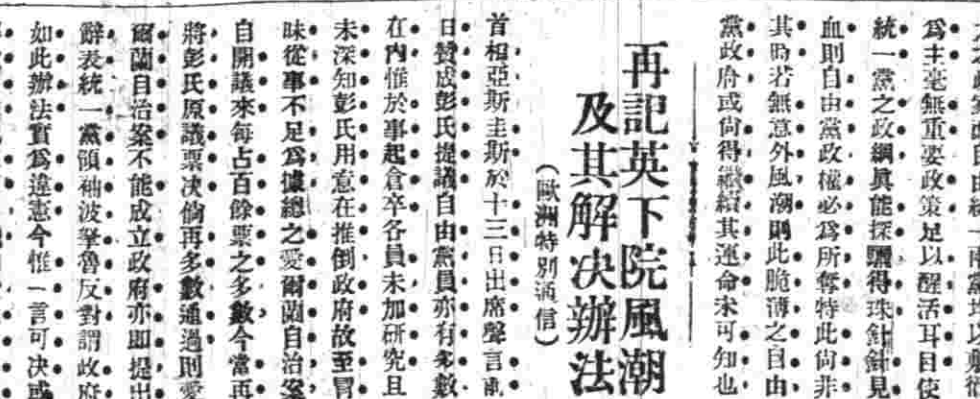 爲主毫無重要政策足以醒活耳目使
統一黨之政綱眞能探驪得珠針針見
血則自由黨政權必爲所奪特此尙非
其時若無意外風潮則此脆薄之自由
黨政府或尙得繼續其運命未可知也
再記英下院風潮
及其解决辦法
（歐洲特別通信）
首相亞斯圭斯於十三日出席聲言前
日贊成彭氏提議自由黨員亦有多數
在內惟於事起倉卒各員未加研究且
未深知彭氏用意在推倒政府故至冒
昧從事不足爲據總之愛爾蘭自治案
自開議來每占百餘票之多數今當再
將彭氏原議票决倘再多數通過則愛
爾蘭自治案不能成立政府亦即提出
辭表統一黨領袖波拏魯反對謂政府
如此辦法實爲違憲今惟一言可决或